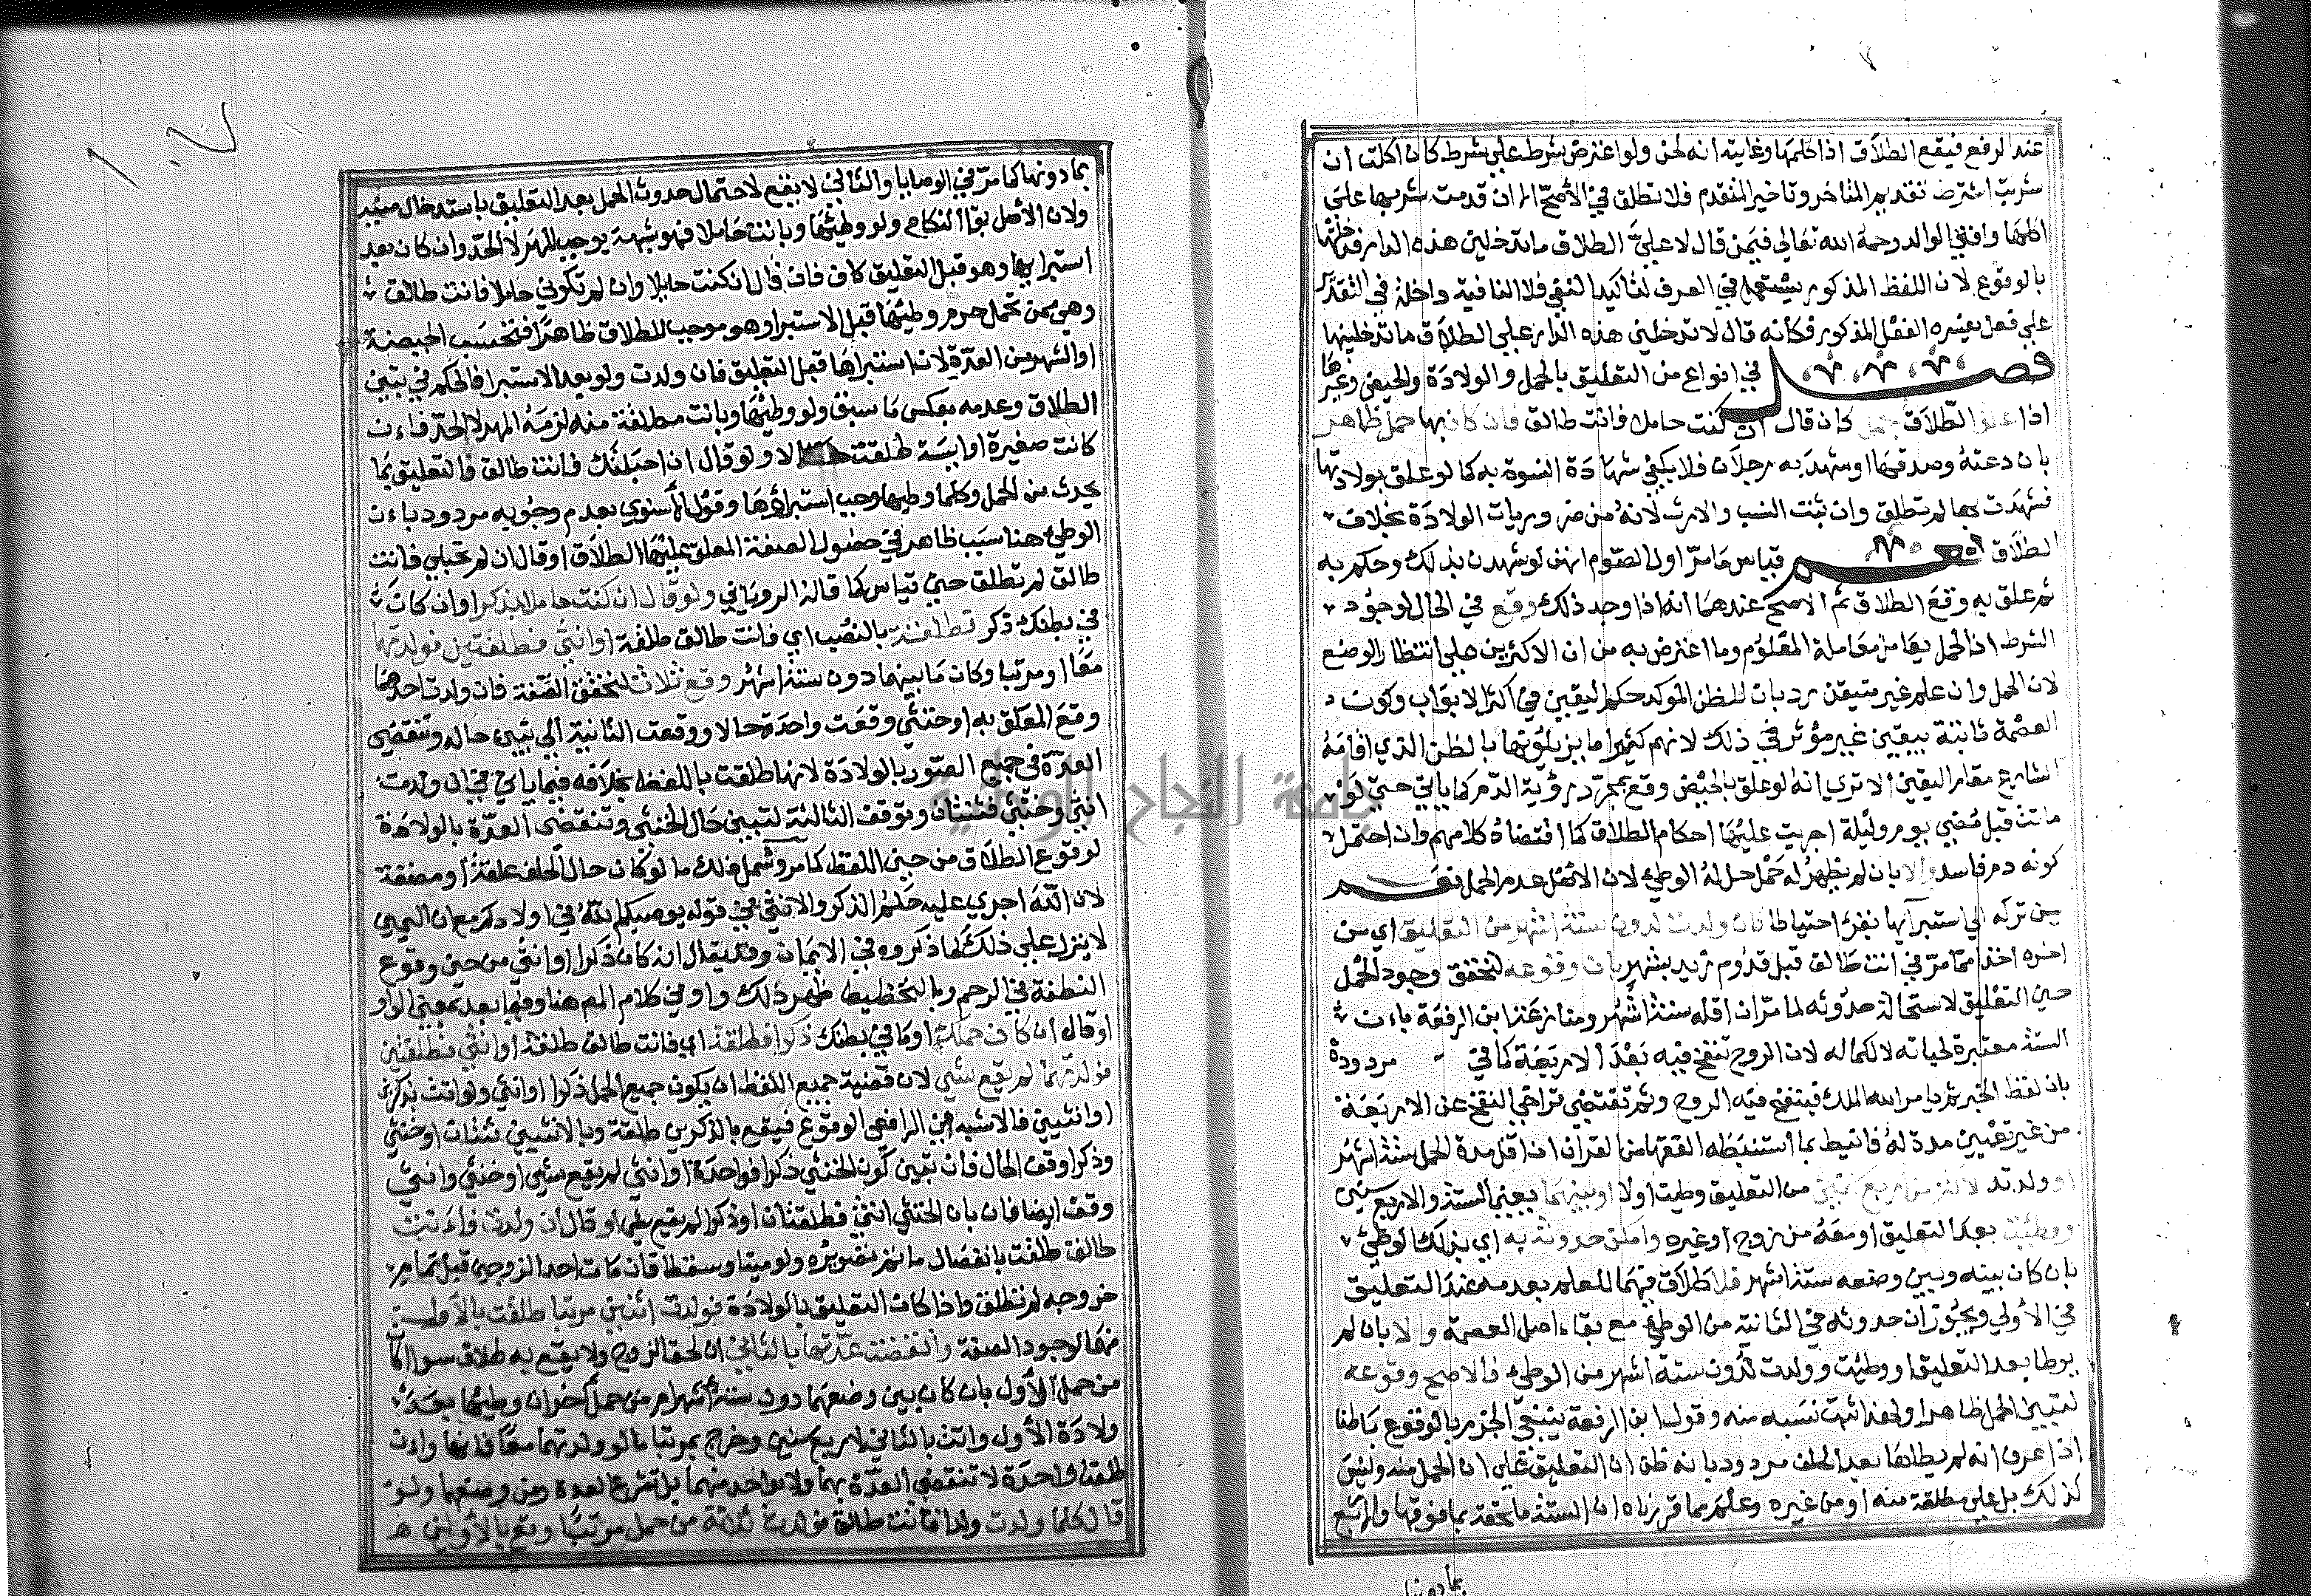 عند الرفع فيقع الطلاق اذا كلمها وغايته انه لحن ولو اعترض شرط على شرط كان اكلت ان
شربت اشترط تقديم المتاخر وتاخير المتقدم فلا تطلق في الأصح الا ان قدمت شربها على
اكلها وافتى الوالد رحمة الله تعالى فيمن قال لا علي الطلاق ما تدخلين هذه الدار فدخلتها
بالوقوع لان اللفظ المذكور يستعمل في العرف لتاكيد النفي فلا النافية داخلة في التقدير
على فعل يفسره الفعل المذكور فكأنه قال لا تدخلين هذه الدار علي الطلاق ما تدخلينها
فصل في انواع من التعليق بالحمل والولادة والحيض وغيرها
اذا علق الطلاق بحمل كان قال ان كنت حاملا فانت طالق فان كان بها حمل ظاهر
بان دعته وصدقها او شهد به رجلان فلا يكفي شهادة النسوة به كما لو علق بولادتها
فشهدت بها لم تطلق وان ثبت النسب والارث لانه من ضروريات الولادة بخلاف
الطلاق نعم قياس ما مرّ اول الصوم انهن لو شهدن بذلك وحكم به
ثم علق به وقع الطلاق ثم الاصح عندهما انه اذا وجد ذلك وقع في الحال لوجود
الشرط اذ الحمل يعامل معاملة المعلوم وما اعترض به من ان الاكثرين على انتظار الوضع
لان الحمل وان علم غير متيقن رد بان للظن المؤكد حكم اليقين في اكثر الابواب وكون
العصمة ثابتة بيقين غير مؤثر في ذلك لانهم كثيرا ما يزيلونها بالظن الذي اقامه
الشارع مقام اليقين الا ترى انه لو علق بالحيض وقع بمجرد رؤية الدم كما ياتي حتى لو
ماتت قبل مضي يوم وليلة اجريت عليها احكام الطلاق كما اقتضاه كلامهم وان احتمل
كونه دم فاسد والا بان لم يظهر له حمل حل له الوطئ لان الاصل عدم الحمل نعم
يسن تركه الى استبرآيها بقرء احتياطا فان ولدت لدون ستة اشهر من التعليق اي من
اخره اخذا مما مرّ في انت طالق قبل قدوم زيد بشهر بان وقوعه لتحقق وجود الحمل
حين التعليق لاستحالة حدوثه لما مرّ ان اقله ستة اشهر ومنازعة ابن الرفعة بان
الستة معتبرة لحياته لا لكماله لان الروح تنفخ فيه بعد الاربعة كما في مردودة
بان لفظ الخبر ثم يامر الله الملك فينفخ فيه الروح وثم تقتضي تراخي النفخ عن الاربعة
من غير تعيين مدة له فانيط بما استنبطه الفقها من القران ان اقل مدة الحمل ستة اشهر
او ولدته لاكثر من اربع سنين من التعليق وطيت اولا او بينهما يعني الستة والاربع سنين
ووطئت بعد التعليق او معه من زوج او غيره وامكن حدوثه به اي بذلك الوطئ
بان كان بينه وبين وضعه ستة اشهر فلا طلاق فيهما للعلم بعدمه عند التعليق
في الأولى ويجوز ان حدوثه في الثانية من الوطئ مع بقاء اصل العصمة والا بان لم
يوطا بعد التعليق او وطئت وولدت لدون ستة اشهر من الوطئ فالاصح وقوعه
لتبين الحمل ظاهرا ولهذا ثبت نسبه منه وقول ابن الرفعة ينبغي الجزم بالوقوع باطنا
اذا عرف انه لم يطاها بعد الحلف مردود بانه ظن ان التعليق على ان الحمل منه وليس
كذلك بل على مطلقه منه او من غيره وعلم مما قررناه ان الستة ملحقة بما فوقها والاربع
بما دونها
بما دونها كما مرّ في الوصايا والثاني لا يقع لاحتمال حدوث الحمل بعد التعليق باستدخال منيه
ولان الاصل بقا النكاح ولو وطئها وبانت حاملا فهو شبهة يوجب المهر لا الحد وان كان بعد
استبرايها وهو قبل التعليق كاف فان قال ان كنت حايلا وان لم تكوني حاملا فانت طالق
وهي ممن تحمل حرم وطئها قبل الاستبرا وهو موجب للطلاق ظاهرا فتحسب الحيضة
او الشهر من العدة لان استبراها قبل التعليق فان ولدت ولو بعد الاستبرا فالحكم في تبين
الطلاق وعدمه بعكس ما سبق ولو وطئها وبانت مطلقة منه لزمه المهر لا الحد فان
كانت صغيرة او ايسة طلقت حالا ولو قال ان احبلتك فانت طالق فالتعليق بما
يحدث من الحمل وكلما وطيها وجب استبراؤها وقول الأسنوي بعدم وجوبه مردود بان
الوطئ هنا سبب ظاهر في حصول الصفة المعلق عليها الطلاق او قال ان لم تحبلي فانت
طالق لم تطلق حتى تياس كما قاله الروياني ولو قال ان كنت حاملا بذكر او ان كان
في بطنك ذكر فطلقة بالنصب اي فانت طالق طلقة او انثى فطلقتين فولدتهما
معا او مرتبا وكان ما بينهما دون ستة اشهر وقع ثلاث لتحقق الصفة فان ولدت احدهما
وقع المعلق به او خنثى وقعت واحدة حالا ووقعت الثانية الى تبين حاله وتنقضي
العدة في جميع الصور بالولادة لانها طلقت باللفظ بخلافه فيما ياتي في ان ولدت
انثى وخنثى فثنتان وتوقف الثالثة لتبين حال الخنثى وتنقضي العدة بالولادة
لوقوع الطلاق من حين اللفظ كما مر وشمل ذلك ما لو كان حال الحلف علقة او مضغة
لان الله اجرى عليه حكم الذكر والانثى في قوله يوصيكم الله في اولادكم مع ان اليمين
لا ينزل على ذلك كما ذكروه في الايمان وقد يقال انه كان ذكرا او انثى من حين وقوع
النطفة في الرحم وبالتخطيط ظهر ذلك واو في كلام المص هنا وفيما بعد بمعنى الواو
او قال ان كان حملك او ما في بطنك ذكرا فطلقة اي فانت طالق طلقة او انثى فطلقتين
فولدتهما لم يقع شي لان قضية جميع اللفظ ان يكون جميع الحمل ذكرا او انثى ولو اتت بذكرين
او انثيين فالاشبه في الرافعي الوقوع فيقع بالذكرين طلقة وبالانثيين ثنتان او خنثى
وذكرا وقف الحال فان تبين كون الخنثى ذكرا فواحدة او انثى لم يقع شي او خنثى وانثى
وقف ايضا فان بان الخنثى انثى فطلقتان او ذكرا لم يقع شي او قال ان ولدت فانت
طالق طلقت بانفصال ما تم تصويره ولو ميتا وسقطا فان مات احد الزوجين قبل تمام
خروجه لم تطلق واذا كان التعليق بالولادة فولدت اثنين مرتبا طلقت بالأول
منهما لوجود الصفة وانقضت عدتها بالثاني ان لحق الزوج ولا يقع به طلاق سوا اكان
من حمل الأول بان كان بين وضعهما دون ستة اشهر ام من حمل آخر ان وطيها بعد
ولادة الأول واتت بالثاني لاربع سنين وخرج بمرتبا ما لو ولدتهما معا فانها وان
طلقت واحدة لا تنقضي العدة بهما ولا بواحد منهما بل تشرع العدة من وضعهما ولو
قال كلما ولدت ولدا فانت طالق فولدت ثلاثة من حمل مرتبا وقع بالأولين